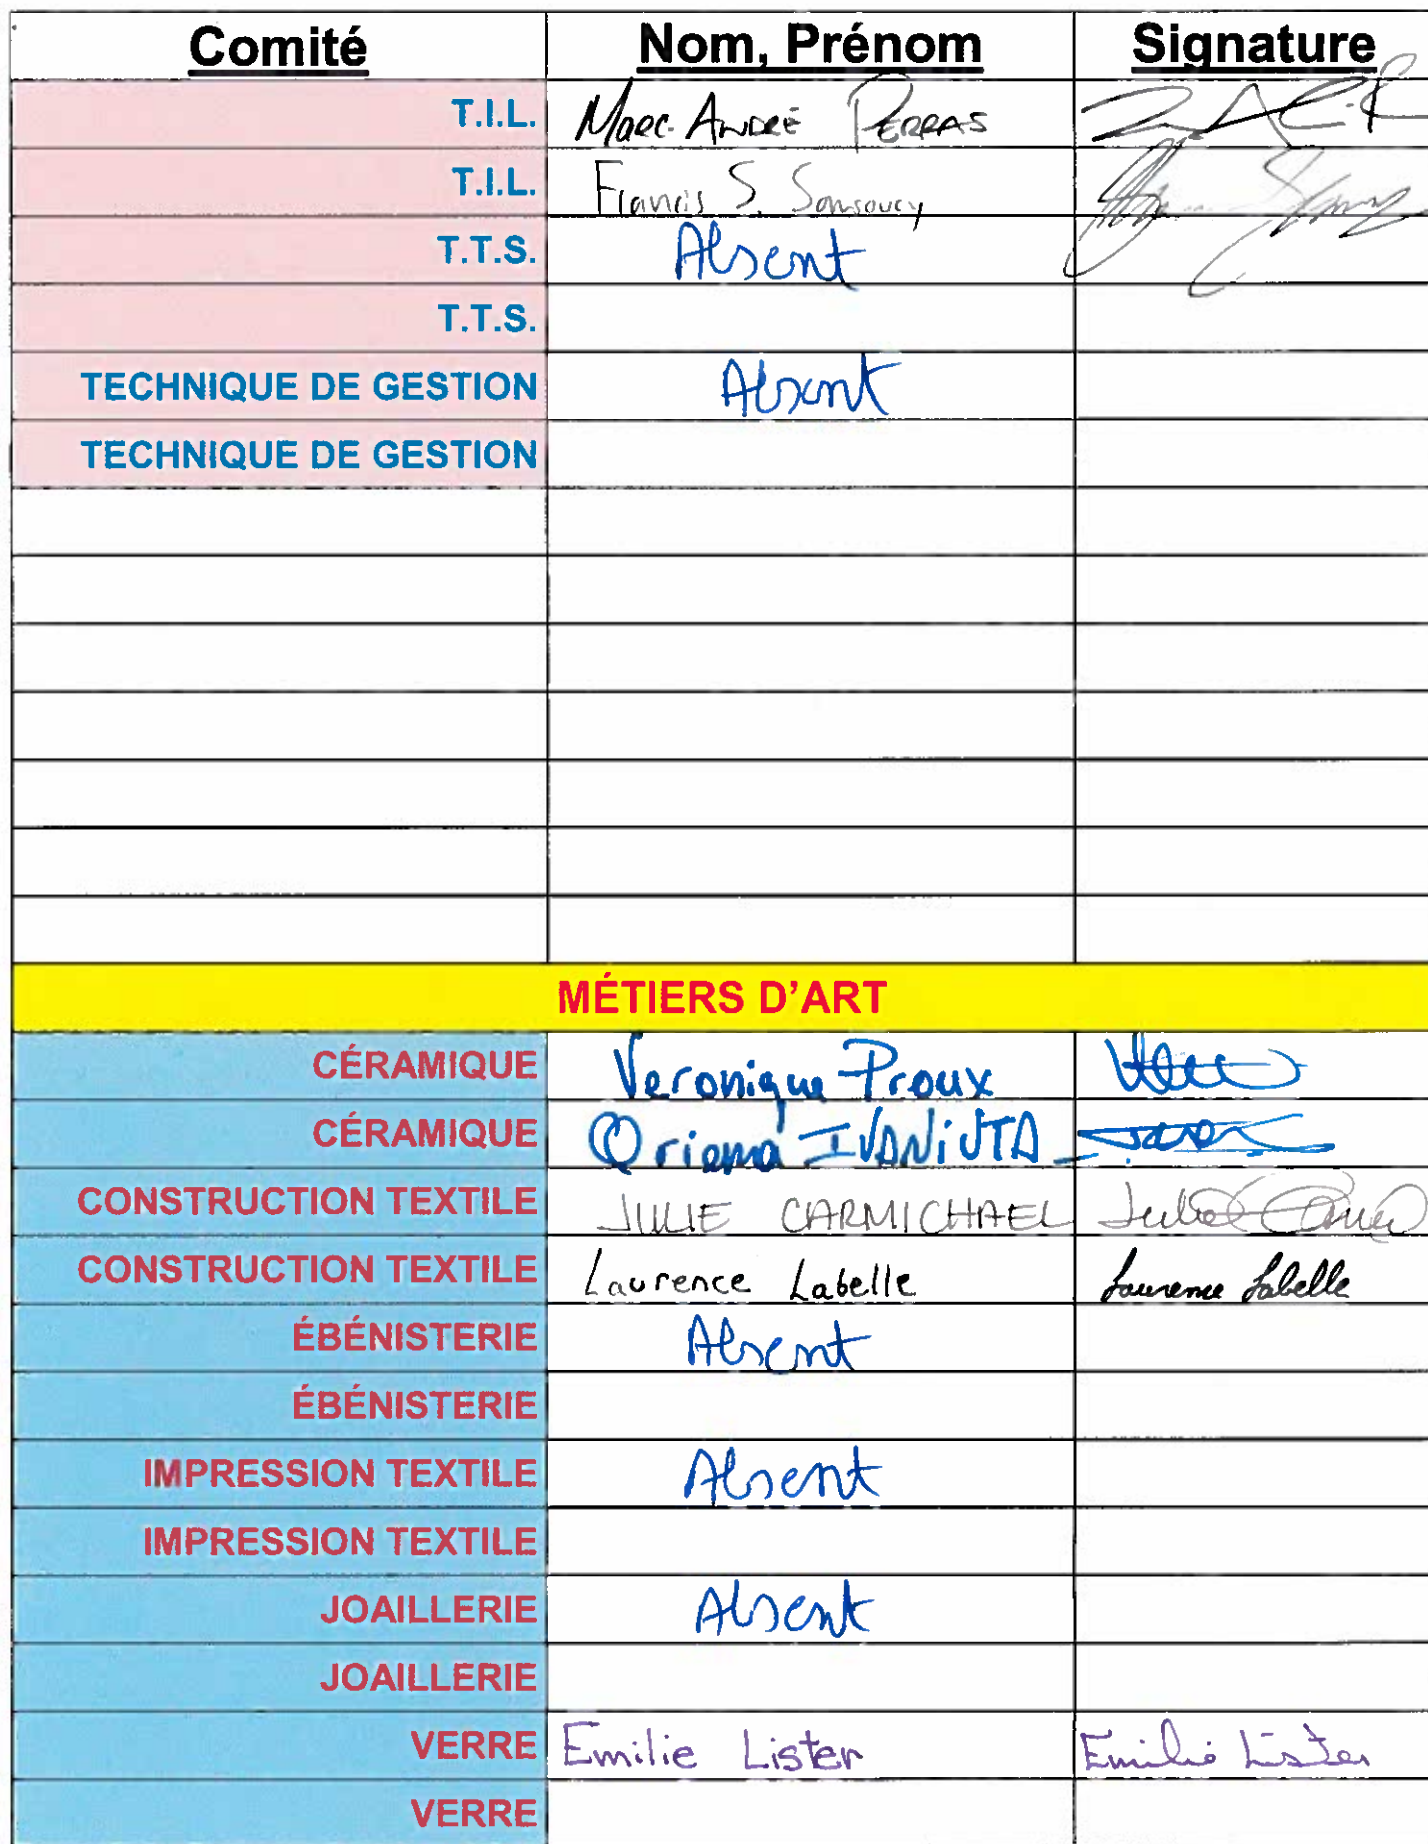 Comité Nom, Prénom Signature
T.I.L. Marc-André PERRAS
T.I.L. Francis S. Sansoucy
T.T.S. Absent
T.T.S.
TECHNIQUE DE GESTION Absent
TECHNIQUE DE GESTION
MÉTIERS D'ART
CÉRAMIQUE Veronique Proux
CÉRAMIQUE Oriana IVANIUTA
CONSTRUCTION TEXTILE JULIE CARMICHAEL
CONSTRUCTION TEXTILE Laurence Labelle Laurence Labelle
ÉBÉNISTERIE Absent
ÉBÉNISTERIE
IMPRESSION TEXTILE Absent
IMPRESSION TEXTILE
JOAILLERIE Absent
JOAILLERIE
VERRE Emilie Lister Emilie Lister
VERRE